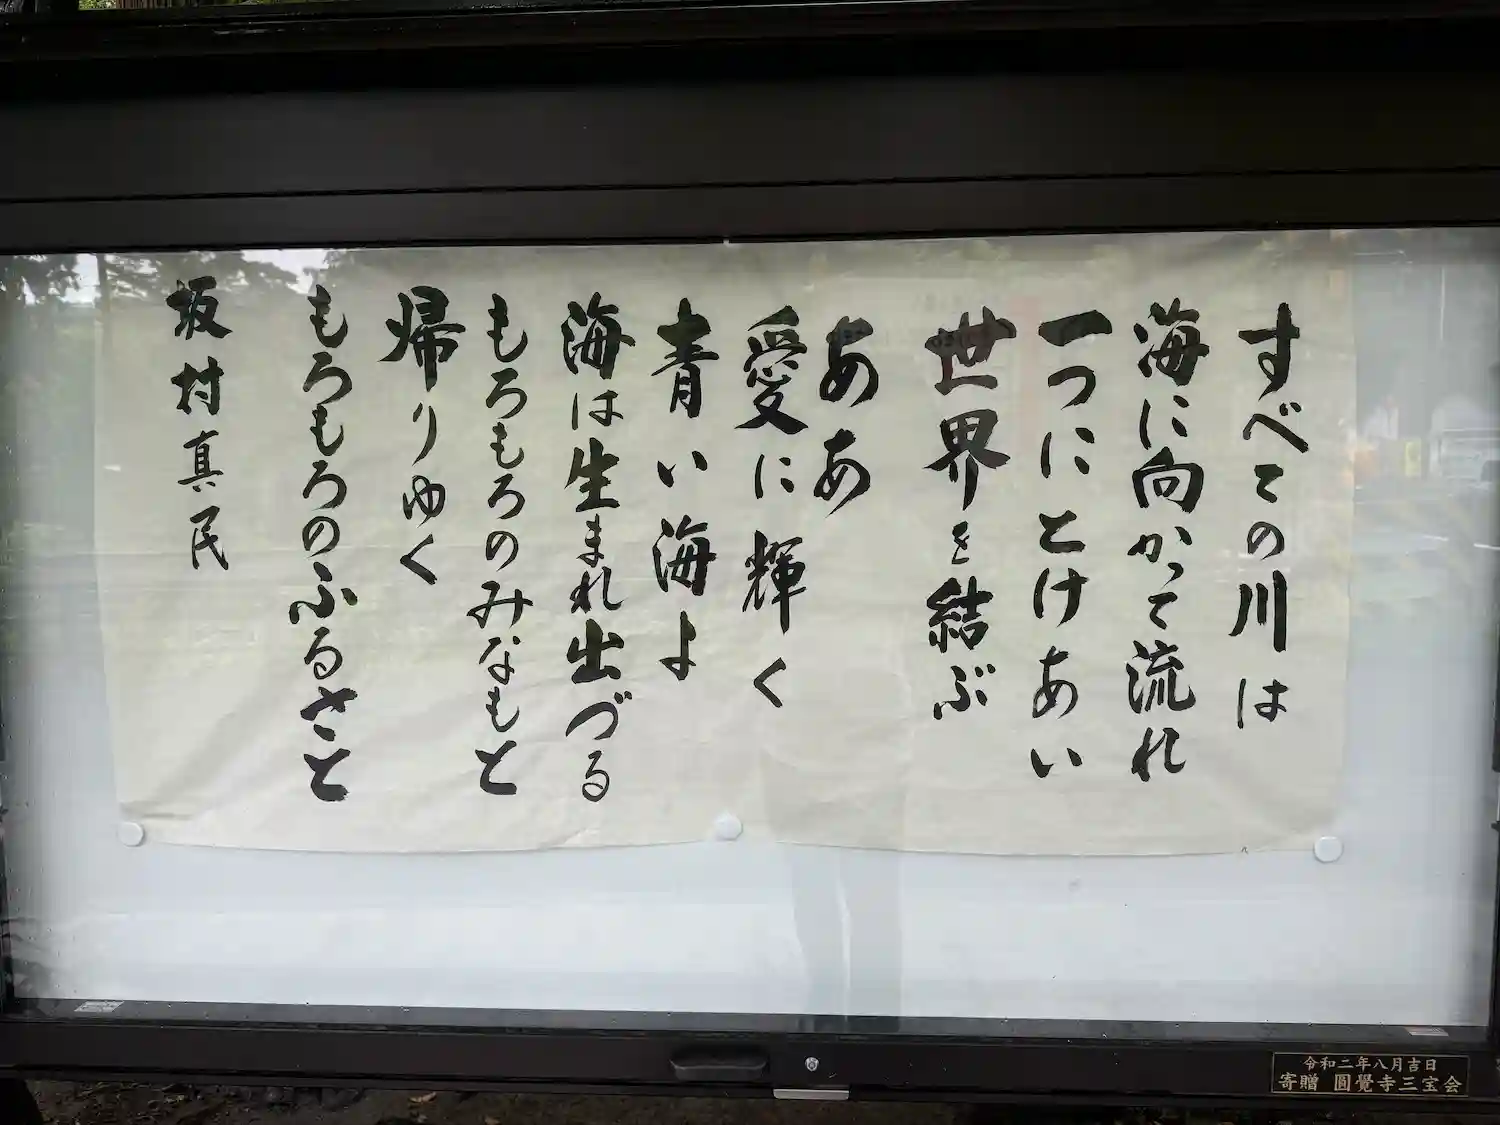 すべての川は
海に向かって流れ
一つにとけあい
世界を結ぶ
ああ
愛に輝く
青い海よ
海は生まれ出づる
もろもろのみなもと
帰りゆく
もろもろのふるさと
坂村真民
令和二年八月吉日
寄贈 圓覺寺三宝会